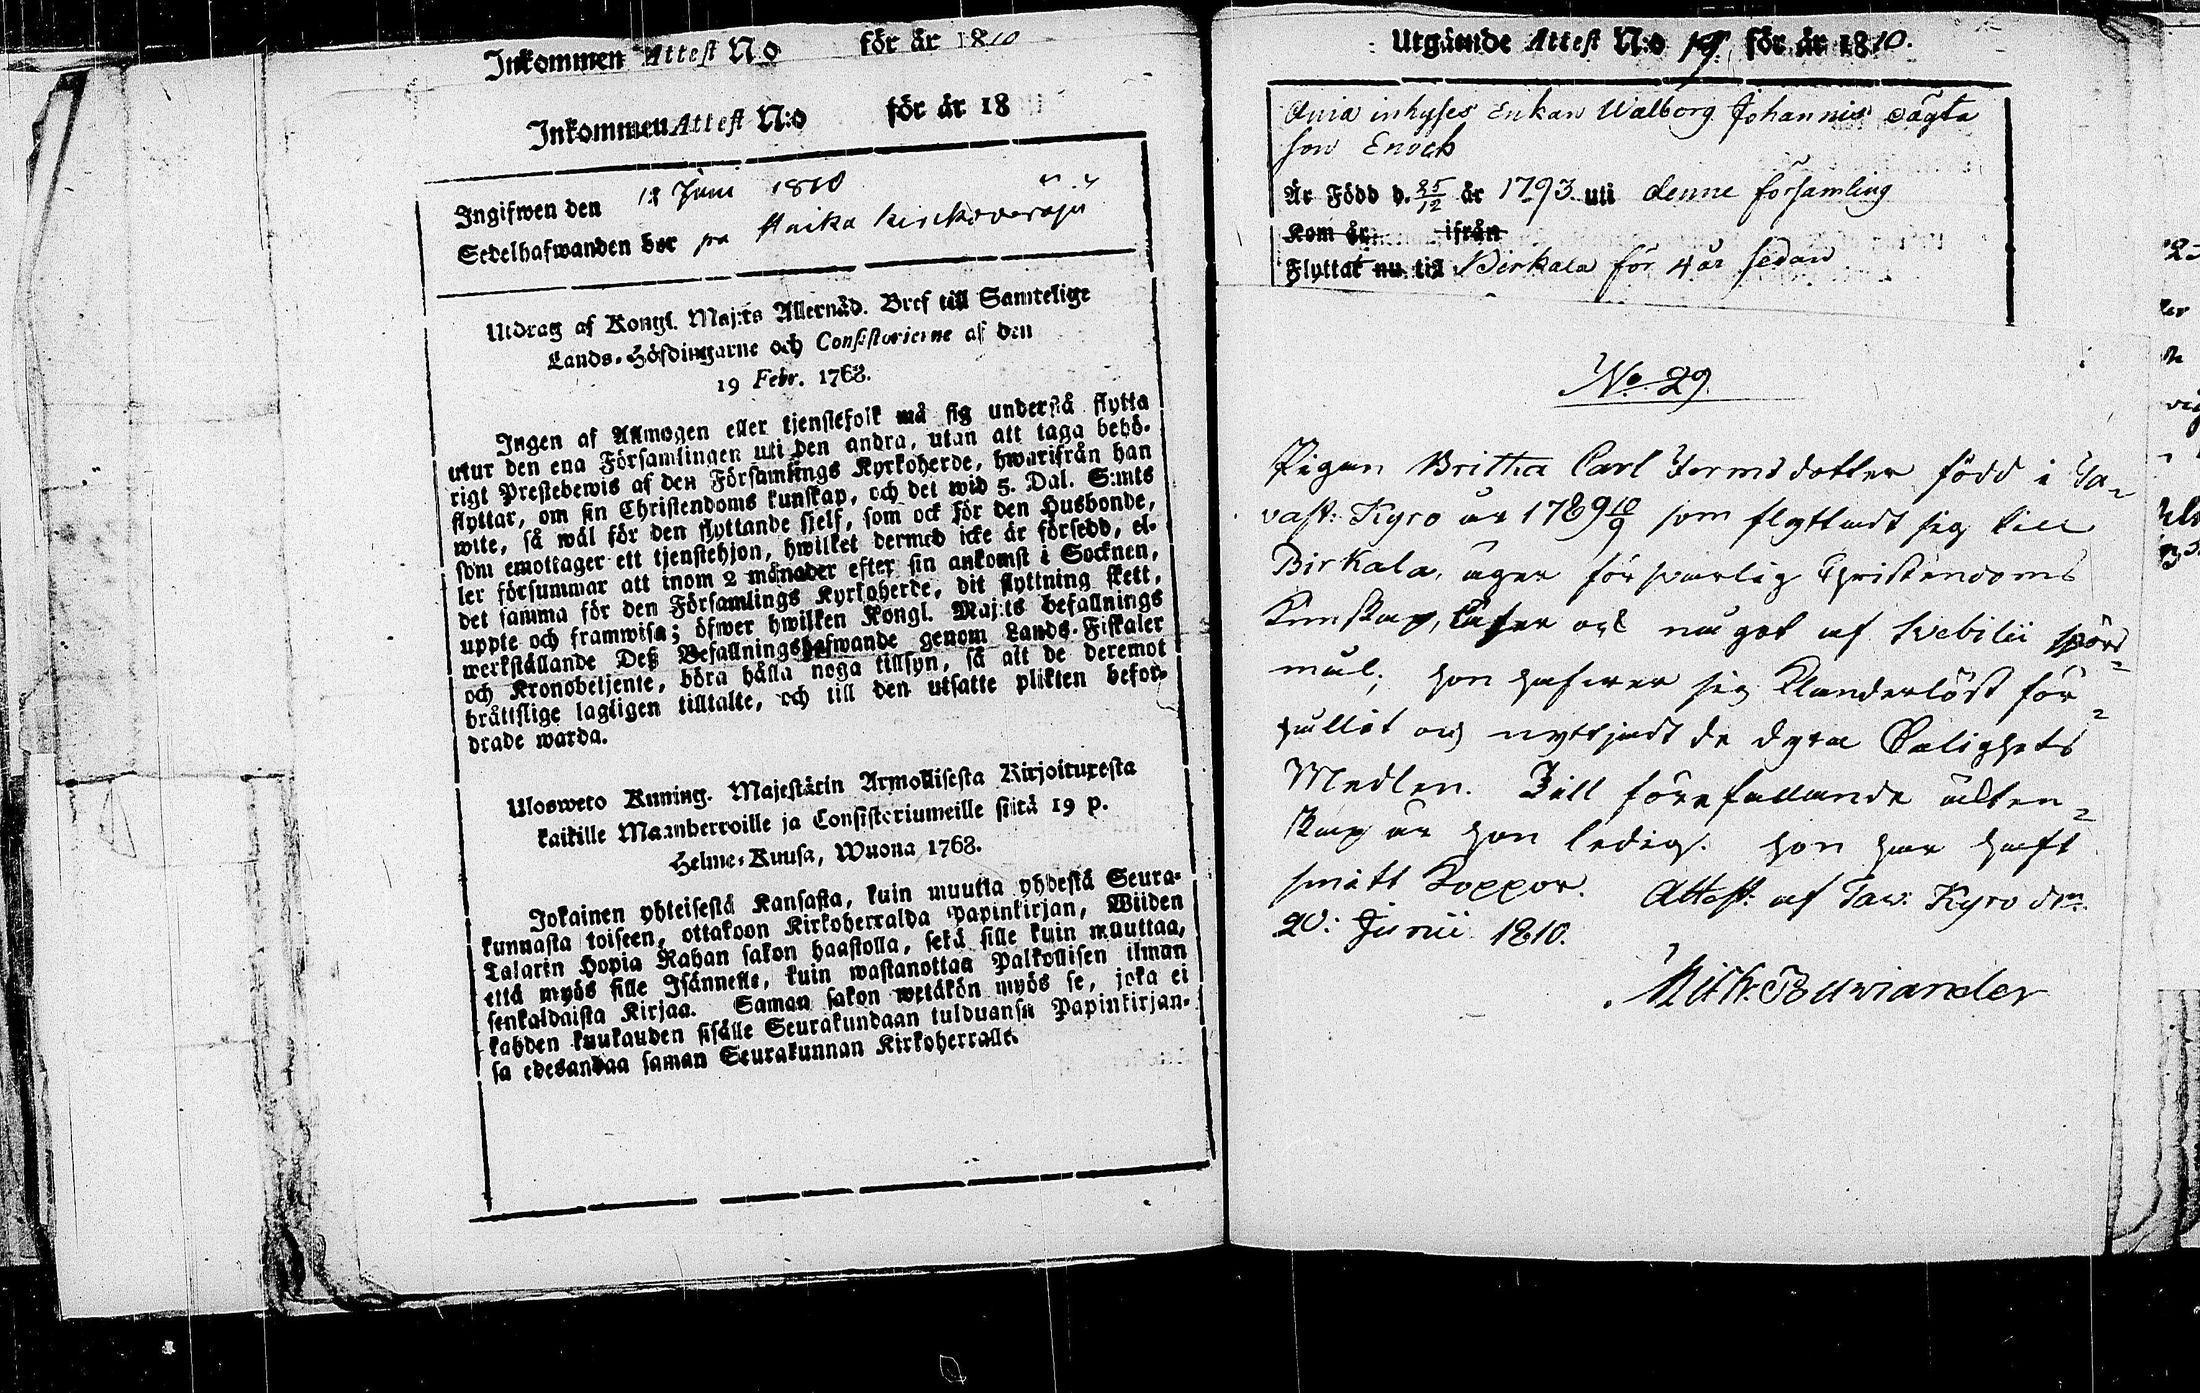 Inkommen Attest N:o för år 1810
Inkommen Attest N:o för år 18
Ingifwen den 12 Juni 1810
Sedelhafwanden bor på
Utdrag af Kongl. Maj:ts Allernåd. Bref till Samtelige
Lands-Höfdingarne och Consistorierne af den
19 Febr. 1768.
Ingen af Allmogen eller tjenstefolk må sig understå flytta
utur den ena Församlingen uti den andra, utan att taga behö-
rigt Prestebewis af den Församlings Kyrkoherde, hwarifrån han
flyttar, om sin Christendoms kunskap, och det wid 5. Dal. S:mts
wite, så wäl för den flyttande sielf, som ock för den Husbonde,
som emottager ett tjenstehjon, hwilket dermed icke är försedd, el-
ler försummar att inom 2 månader efter sin ankomst i Socknen,
det samma för den Församlings Kyrkoherde, dit flyttning skett,
uppte och framwisa; öfwer hwilken Kongl. Maj:ts befallnings
werkställande Deß Befallningshafwande genom Lands-Fiskaler
och Kronobetjente, böra hålla noga tillsyn, så att de deremot
bråttslige lagligen tilltalte, och till den utsatte plikten befor-
drade warda.
Ulosweto Kuning. Majestätin Armollisesta Kirjoituxesta
kaikille Maanherroille ja Consistoriumeille siitä 19 p.
Helme-Kuusa, Wuona 1768.
Jokainen yhteisestä Kansasta, kuin muutta yhdestä Seura-
kunnasta toiseen, ottakoon Kirkoherralda Papinkirjan, Wiiden
Talarin Hopia Rahan sakon haastolla, sekä sille kuin muuttaa,
että myös sille Isännelle, kuin wastanottaa Palkollisen ilman
senkaldaista Kirjaa. Saman sakon wetäkön myös se, joka ei
kahden kuukauden sisälle Seurakundaan tulduansa Papinkirjan-
sa edesandaa saman Seurakunnan Kirkoherralle.
Utgående Attest N:o 19 för år 1810.
inhyses Enkan Walborg Johannis ägta
son Enoch
Är Född d. 25/12 år 1793. uti denne församling
Kom år ifrån
Flyttat nu till Birkala för 4 år sedan
No. 29.
Pigan Britha Carl dotter född i Ta-
vast: Kyro år 1789 10/9 som flyttadt sig till
Birkala, äger försvarlig Christendoms
Kunskap, läser ock något af Svebilii spörs-
mål; hon hafwer sig Klanderlöst för-
hållit och nyttjadt de dyra Salighets
Medlen. Till förefallande äkten-
skap är hon ledig. hon har haft
smått Koppor. Attest. af Taw. Kyro den
20: Junii 1810.